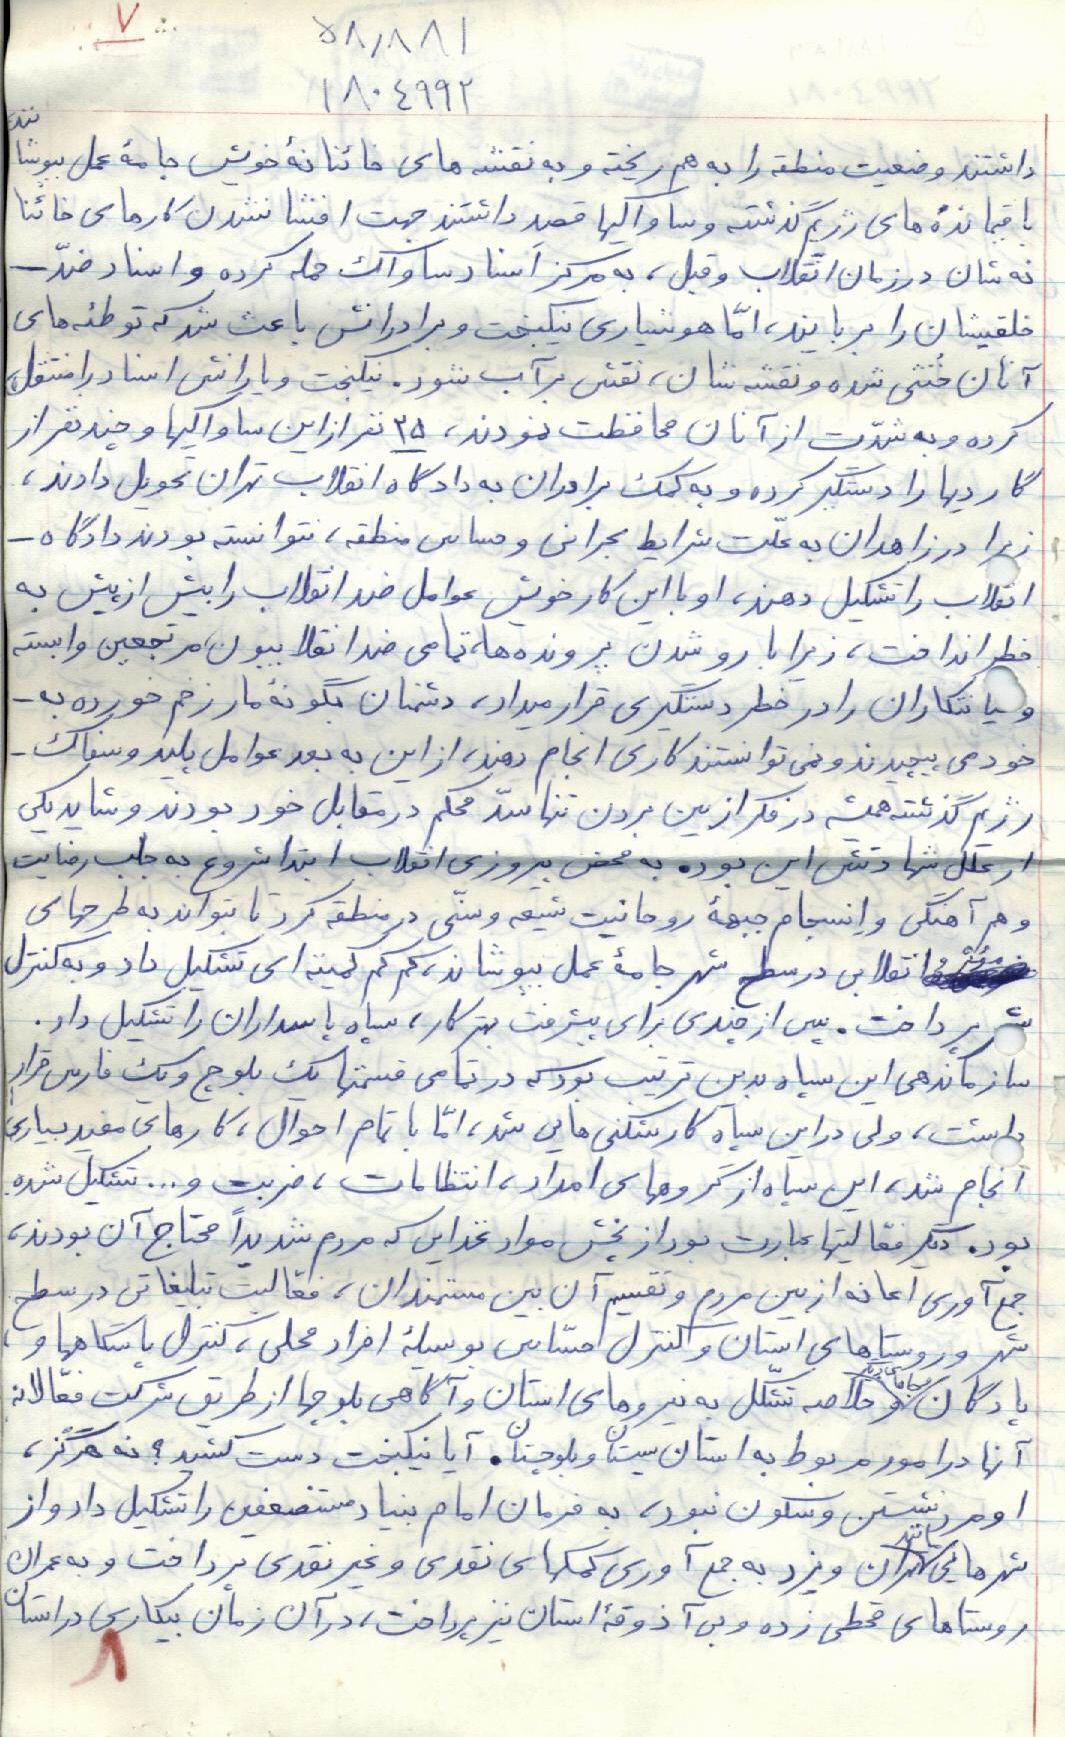 ۷
۵۸/۸۸۱
۱۸۰۴۹۹۲
داشتند وضعیت منطقه را به هم ریخته و به نقشه های خائنانهٔ خویش جامهٔ عمل بپوشانند،
باقیمانده های رژیم گذشته وساواکیها قصد داشتند جهت افشا نشدن کارهای خائنا
نه شان در زمان انقلاب وقبل، به مرکز اسناد ساواک حمله کرده و اسناد ضدّ ــ
خلقیشان را بربایند، امّا هوشیاری نیکبخت وبرادرانش باعث شد که توطئه های
آنان خنثی شده و نقشه شان، نقش برآب شود. نیکبخت ویارانش اسناد را منتقل
کرده و به شدّت از آنان محافظت نمودند، ۲۵ نفر از این ساواکیها و چند نفر از
گاردیها را دستگیر کرده و به کمک برادران به دادگاه انقلاب تهران تحویل دادند،
زیرا در زاهدان به علّت شرایط بحرانی و حساس منطقه، نتوانسته بودند دادگاه ـ
انقلاب را تشکیل دهند، او با این کار خویش عوامل ضد انقلاب را بیش از پیش به
خطر انداخت، زیرا با رو شدن پرونده ها، تمامی ضد انقلابیون، مرتجعین وابسته
وخیانتکاران را در خطر دستگیری قرار میداد، دشمنان بگونهٔ مار زخم خورده به ـ
خود می پیچیدند و نمی توانستند کاری انجام دهند، از این به بعد عوامل پلید و سفاک ـ
رژیم گذشته همیشه در فکر از بین بردن تنها سدّ محکم در مقابل خود بودند و شاید یکی
از علل شهادتش این بوده. به محض پیروزی انقلاب ابتدا شروع به جلب رضایت
و هم آهنگی و اِنسجام جبههٔ روحانیت شیعه وسنّی در منطقه کرد تا بتواند به طرحهای
انقلابی در سطح شهر جامهٔ عمل بپوشاند، کم کم کمیته ای تشکیل داد و به کنترل
شهر پرداخت. پس از چندی برای پیشرفت بهتر کار، سپاه پاسداران را تشکیل داد.
سازماندهی این سپاه بدین ترتیب بود که در تمامی قسمتها یک بلوچ ویک فارس قرار
داشت، ولی در این سپاه کارشکنی هایی شد، امّا با تمام احوال، کارهای مفید بسیاری
انجام شد، این سپاه از گروههای امداد، انتظامات، ضربت و... تشکیل شده
بود. دیگر فعّالیتها عبارت بود از پخش مواد غذایی که مردم شدیداً محتاج آن بودند،
جمع آوری اعانه از بین مردم و تقسیم آن بین مستمندان، فعّالیت تبلیغاتی در سطح
شهر و روستاهای استان و کنترل حسّاس بوسیلهٔ افراد محلی، کنترل پاسگاهها و
پادگان و خلاصه تشکّل به نیروهای استان و آگاهی بلوچها از طریق شرکت فعّالانهٔ
آنها در امور مربوط به استان سیستان وبلوچستان. آیا نیکبخت دست کشید؟ نه هرگز،
او مرد نشستن وسکون نبود، به فرمان امام بنیاد مستضعفین را تشکیل داد و از
شهرهایی مانند تهران ویزد به جمع آوری کمکهای نقدی و غیر نقدی پرداخت و به عمران
روستاهای قحطی زده و بی آذوقهٔ استان نیز پرداخت، در آن زمان بیکاری در استان
۸